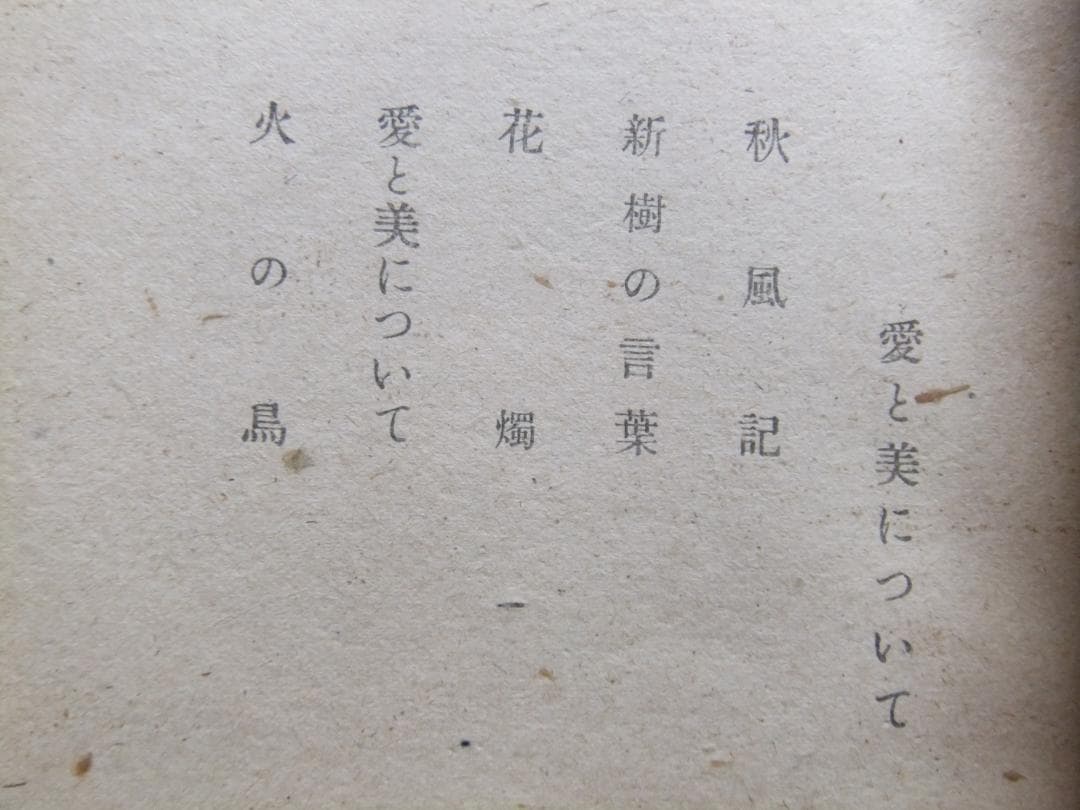 愛と美について
秋風記
新樹の言葉
花燭
愛と美について
火の鳥